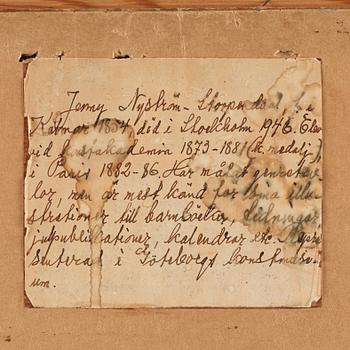 Jenny Nyström - Stoopendaal,
Kalmar 1854 död i Stockholm 1946. Elev
vid konstakademin 1873-1881 (k. medalj)
i Paris 1882-86. Har målat genretav-
lor, men är mest känd för sina illu-
strationer till barnböcker, tidningar,
julpublikationer, kalendrar etc. Repre
senterad i Göteborgs konstmuse-
um.